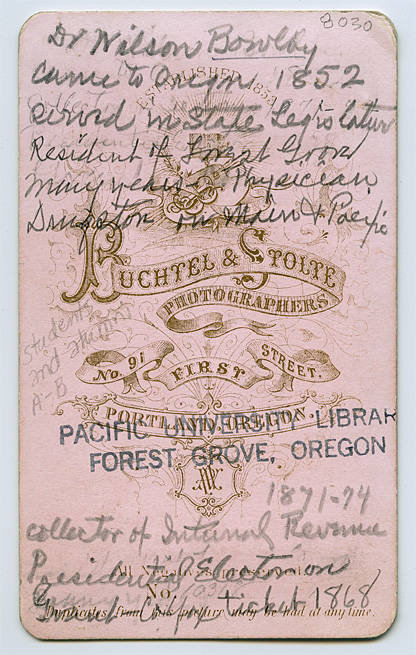 8030
Dr Wilson Bowlby
came to Oregon 1852
ESTABLISHED 1853
served in State Legislature
Resident of Forest Grove
many years - Physician
Drugstore on Main & Pacific
BUCHTEL & STOLTE
PHOTOGRAPHERS
Students
and alumni
A-B
No. 91 FIRST STREET.
PORTLAND, OREGON.
PACIFIC UNIVERSITY LIBRAR
FOREST GROVE, OREGON
1871-74
collector of Internal Revenue
All Negatives preserved.
Presidential Election
No.
Grant ticket 1868
Duplicates from this picture may be had at any time.